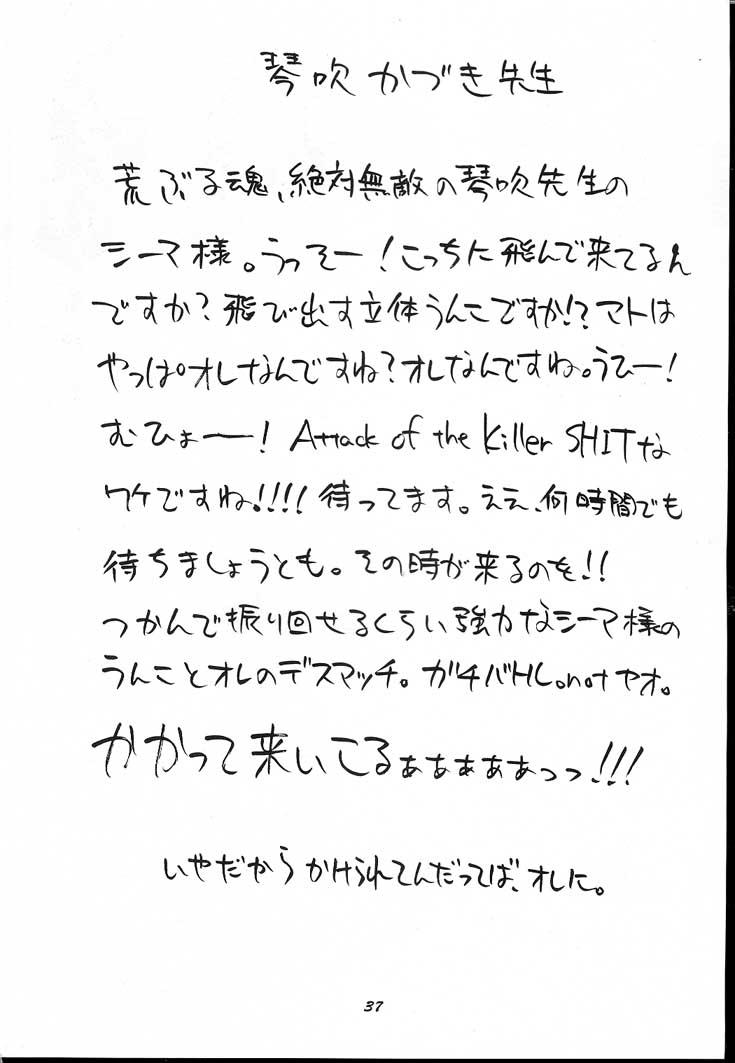 琴吹かづき先生
荒ぶる魂、絶対無敵の琴吹先生の
シーマ様。うっそー!こっちに飛んで来てるん
ですか?飛び出す立体うんこですか!?マトは
やっぱオレなんですね?オレなんですね。うひー!
むひょーー!Attack of the Killer SHITな
ワケですね!!!!待ってます。ええ、何時間でも
待ちましょうとも。その時が来るのを!!
つかんで振り回せるくらい強力なシーマ様の
うんことオレのデスマッチ。ガチバトル。notヤオ。
かかって来いこるぁぁぁぁぁっっ!!!
いやだからかけられてんだってば、オレに。
37